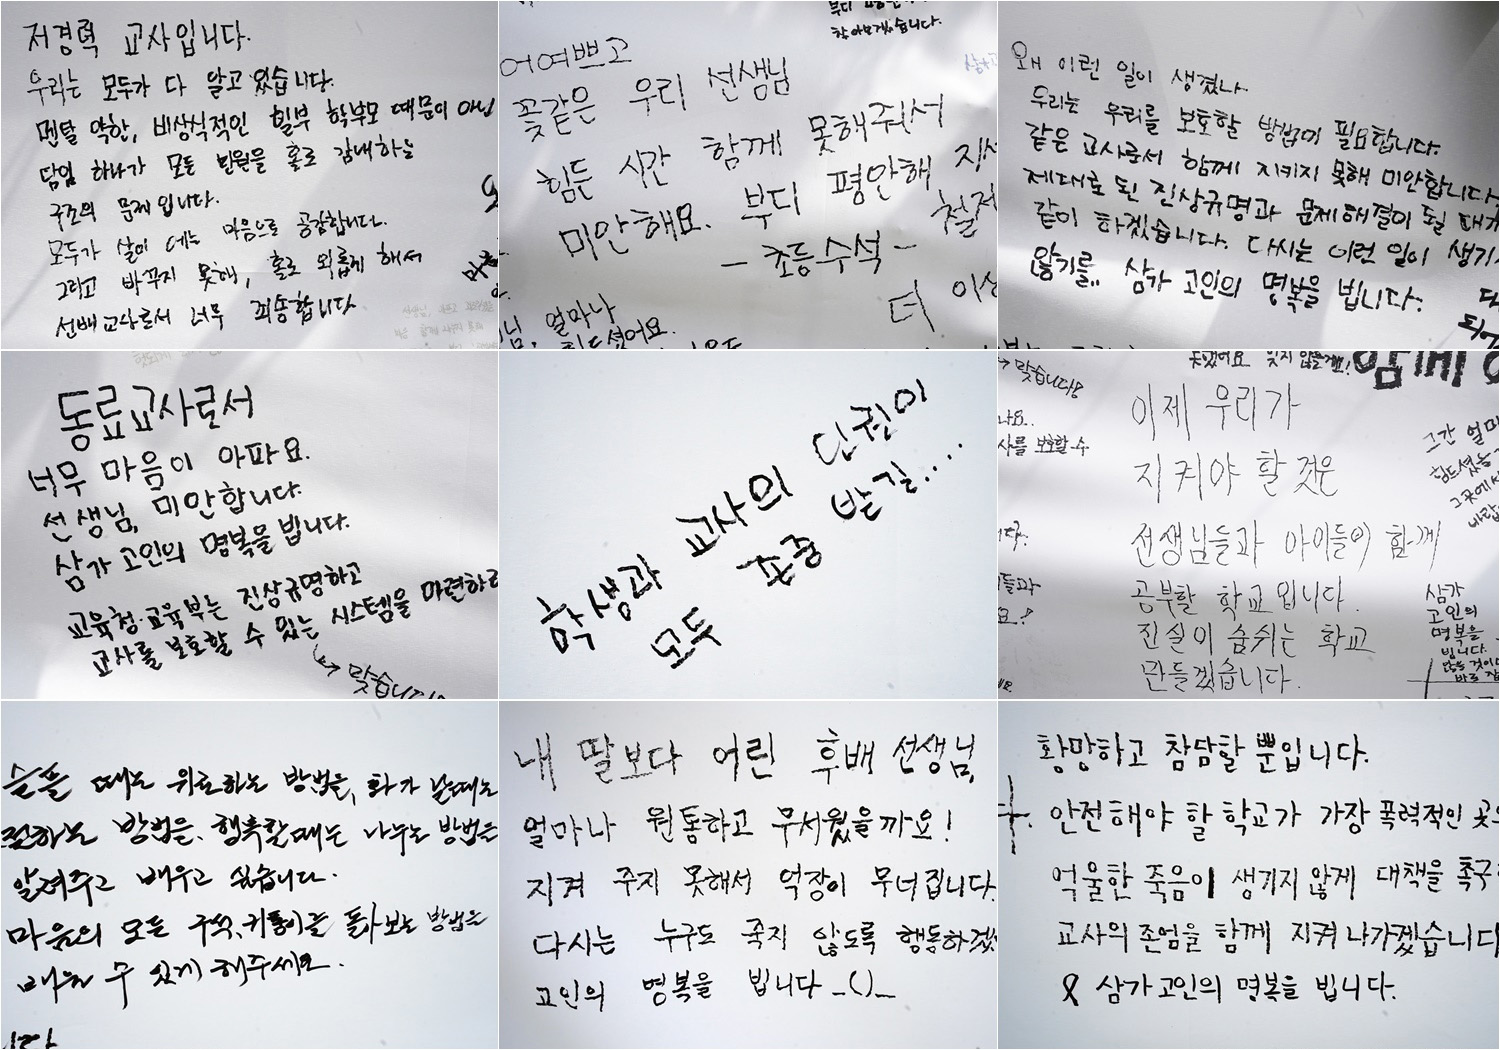 저경력 교사입니다.
우리는 모두가 다 알고 있습니다.
멘탈 약한, 비상식적인 일부 학부모 때문이 아닌
담임 하나가 모든 민원을 홀로 감내하는
구조의 문제입니다.
모두가 살이 에는 마음으로 공감합니다.
그리고 바꾸지 못해, 홀로 외롭게 해서
선배교사로서 너무 죄송합니다
찾아보겠습니다.
어여쁘고
꽃같은 우리 선생님
힘든 시간 함께 못해줘서
미안해요. 부디 평안해
- 초등수석 -
얼마나
힘드셨어요.
더
왜 이런 일이 생겼나
우리를 보호할 방법이 필요합니다.
같은 교사로서 함께 지키지 못해 미안합니다
제대로 된 진상규명과 문제해결이 될 때까
같이 하겠습니다. 다시는 이런 일이 생기
않기를.. 삼가 고인의 명복을 빕니다.
동료교사로서
너무 마음이 아파요.
선생님, 미안합니다.
삼가 고인의 명복을 빕니다.
교육청·교육부는 진상규명하고
교사를 보호할 수 있는 시스템을 마련하라
→ 맞습니다
학생과 교사의 인권이
모두 존중 받길....
→ 맞습니다!
못했어요 잊지 않을게요!
함께
사를 보호할 수
이제 우리가
지켜야 할 것은
선생님들과 아이들이 함께
공부할 학교입니다.
진실이 숨쉬는 학교
만들겠습니다.
그간 얼마
힘드셨을
그곳에서
삼가
고인의
명복을
빕니다.
슬플 때는 위로하는 방법을, 화가 날때는
전하는 방법을, 행복할때는 나누는 방법을
알려주고 배우고 싶습니다.
마음의 모든 구석, 귀퉁이를 돌아보는 방법을
배울 수 있게 해주세요.
니다
내 딸보다 어린 후배 선생님,
얼마나 원통하고 무서웠을까요!
지켜 주지 못해서 억장이 무너집니다.
다시는 누구도 죽지 않도록 행동하겠
고인의 명복을 빕니다 _()_
황망하고 참담할 뿐입니다.
안전해야 할 학교가 가장 폭력적인 곳으
억울한 죽음이 생기지 않게 대책을 촉구
교사의 존엄을 함께 지켜 나가겠습니다
삼가 고인의 명복을 빕니다.